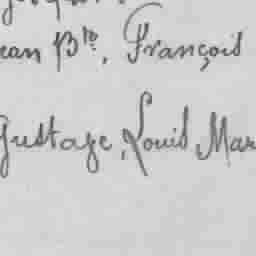 ean Bte, François
Gustave, Louis, Mar